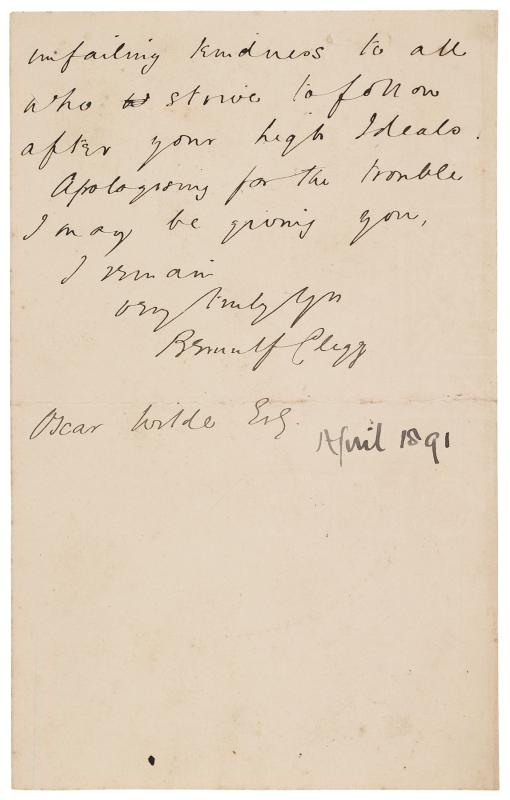 unfailing kindness to all
who to strive to follow
after your high Ideals.
Apologising for the trouble
I may be giving you,
I remain
very truly yrs
Bernulf Clegg
Oscar Wilde Esq.
April 1891